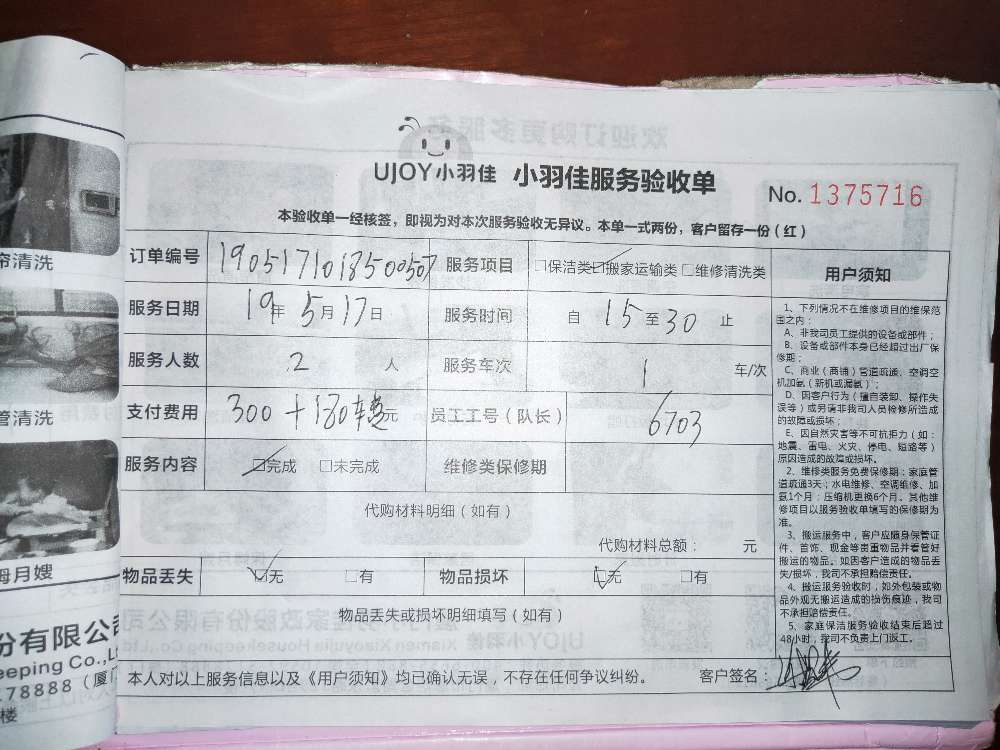 帘清洗
管清洗
母月嫂
份有限公司
eeping Co.,L
178888（厦门
楼
欢迎订购更多服务
UJOY小羽佳 小羽佳服务验收单
No. 1375716
本验收单一经核签，即视为对本次服务验收无异议。本单一式两份，客户留存一份（红）
订单编号 1905171018500507 服务项目 □保洁类 ☑搬家运输类 □维修清洗类
服务日期 19年5月17日 服务时间 自 15 至 30 止
服务人数 2 人 服务车次 1 车/次
支付费用 300+180 元 员工工号（队长） 6703
服务内容 ☑完成 □未完成 维修类保修期
代购材料明细（如有）
代购材料总额： 元
物品丢失 ☑无 □有 物品损坏 ☑无 □有
物品丢失或损坏明细填写（如有）
本人对以上服务信息以及《用户须知》均已确认无误，不存在任何争议纠纷。 客户签名：
用户须知
1、下列情况不在维修项目的维保范
围之内：
A、非我司员工提供的设备或部件；
B、设备或部件本身已经超过出厂保
修期；
C、商业（商铺）管道疏通、空调空
机加氨（新机或漏氨）；
D、因客户行为（擅自装卸、操作失
误等）或另请非我司人员检修所造成
的故障或损坏；
E、因自然灾害等不可抗拒力（如：
地震、雷电、火灾、停电、短路等）
原因造成的故障或损坏。
2、维修类服务免费保修期：家庭管
道疏通3天；水电维修、空调维修、加
氨1个月；压缩机更换6个月。其他维
修项目以服务验收单填写的保修期为
准。
3、搬运服务中，客户应随身保管证
件、首饰、现金等贵重物品并看管好
搬运的物品。如因客户造成的物品丢
失/损坏，我司不承担赔偿责任。
4、搬运服务验收时，如外包装或物
品外观无搬运造成的损伤痕迹，我司
不承担赔偿责任。
5、家庭保洁服务验收结束后超过
48小时，我司不负责上门返工。